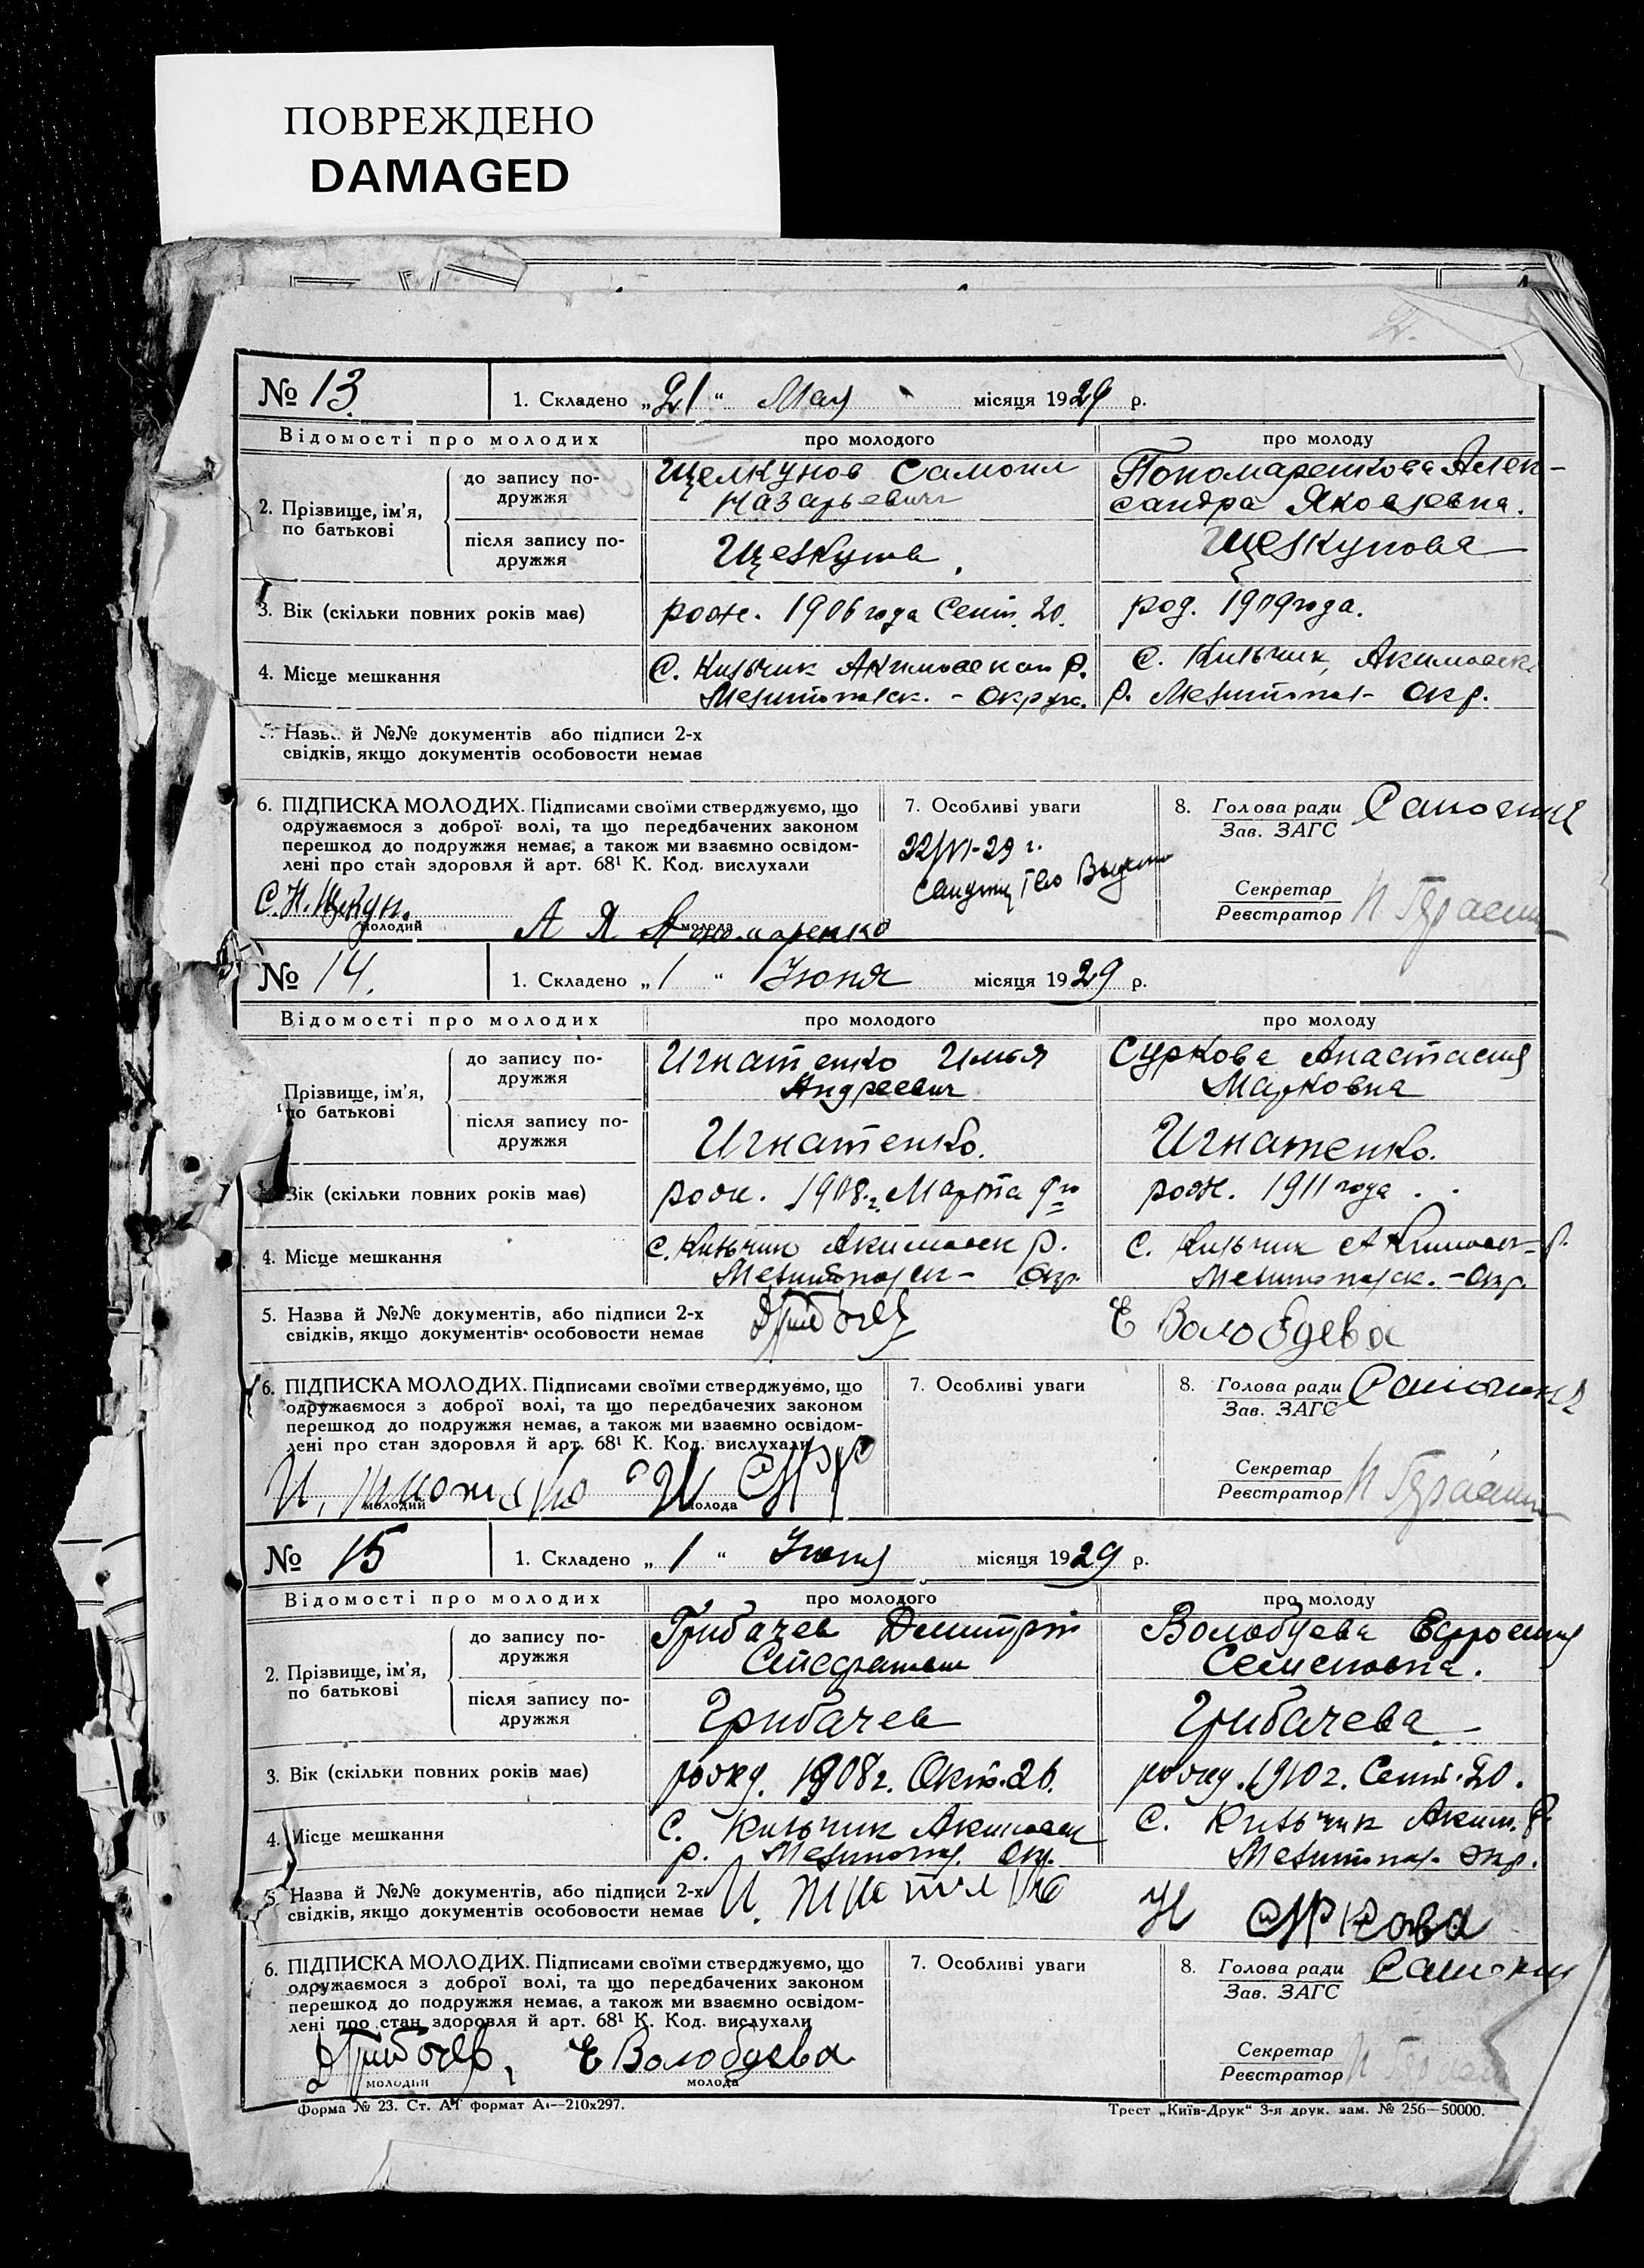 ПОВРЕЖДЕНО
DAMAGED
№ 13. 1. Складено „21“ Мая місяця 1929 р.
Відомості про молодих про молодого про молоду
2. Прізвище, ім'я, по батькові
до запису по-
дружжя
Щелкунов Самоил
Назарьевич
Пономаренкова Алек-
сандра Яковлевна.
після запису по-
дружжя
Щелкунов. Щелкунова
3. Вік (скільки повних років має) рож. 1906 года Сент. 20. род. 1909 года.
4. Місце мешкання
С. Кизьчик Акимовской р.
Мелитопольск. - Округ.
С. Кизьчик, Акимовск.
р. Мелитопол- Окр.
й №№ документів або підписи 2-х
свідків, якщо документів особовости немає
6. ПІДПИСКА МОЛОДИХ. Підписами своїми стверджуємо, що
одружаємося з доброї волі, та що передбачених законом
перешкод до подружжя немає, а також ми взаємно освідом-
лені про стан здоровля й арт. 68¹ К. Код. вислухали
молодий
А Я Пономаренко
молода
7. Особливі уваги
22/VI-29 г.
8. Голова ради
Зав. ЗАГС
Секретар
Реєстратор
№ 14. 1. Складено „1“ Июня місяця 1929 р.
Відомості про молодих про молодого про молоду
Прізвище, ім'я,
по батькові
до запису по-
дружжя
Игнатенко Илья
Андреевич
Суркова Анастасия
Марковна
після запису по-
дружжя
Игнатенко. Игнатенко.
Вік (скільки повних років має) рож. 1908 г. Марта 9го рож. 1911 года.
4. Місце мешкання
С. Кизьчик Акимовск р.
Мелитопольск- Окр.
С. Кизьчик Акимовск- р.
Мелитопольск. - Окр.
5. Назва й №№ документів, або підписи 2-х
свідків, якщо документів особовости немає
ДГрибочев Е Волобуева
6. ПІДПИСКА МОЛОДИХ. Підписами своїми стверджуємо, що
одружаємося з доброї волі, та що передбачених законом
перешкод до подружжя немає, а також ми взаємно освідом-
лені про стан здоровля й арт. 68¹ К. Код. вислухали
молодий молода
7. Особливі уваги
8. Голова ради
Зав. ЗАГС
Секретар
Реєстратор
№ 15 1. Складено „1“ Июня місяця 1929 р.
Відомості про молодих про молодого про молоду
2. Прізвище, ім'я,
по батькові
до запису по-
дружжя
Грибачев Димитрий
Волобуева Ефросиния
Семеновна.
після запису по-
дружжя
Грибачев Грибачева
3. Вік (скільки повних років має) 1908 г. Окт. 26. 1910 г. Сент. 20.
4. Місце мешкання
С. Кизьчик Акимовск
р. Мелитопол. Окр.
С. Кизьчик Аким. р.
Мелитопол. Окр.
5 Назва й №№ документів, або підписи 2-х
свідків, якщо документів особовости немає
Н Суркова
6. ПІДПИСКА МОЛОДИХ. Підписами своїми стверджуємо, що
одружаємося з доброї волі, та що передбачених законом
перешкод до подружжя немає, а також ми взаємно освідом-
лені про стан здоровля й арт. 68¹ К. Код. вислухали
ДГрибочев, Е Волобуева
молодий молода
7. Особливі уваги
8. Голова ради
Зав. ЗАГС
Секретар
Реєстратор
Форма № 23. Ст. А1 формат А₄—210х297. Трест „Київ-Друк“ 3-я друк. зам. № 256—50000.